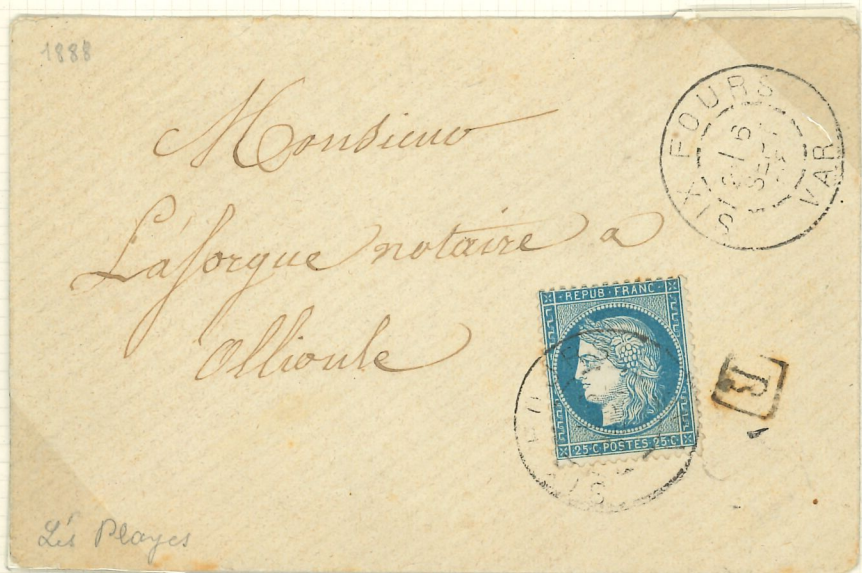 1888
SIX FOURS
VAR
6
SEPT
Monsieur
Laforgue notaire a
Ollioule
REPUB · FRANC
25·C POSTES 25·C
Les Playes